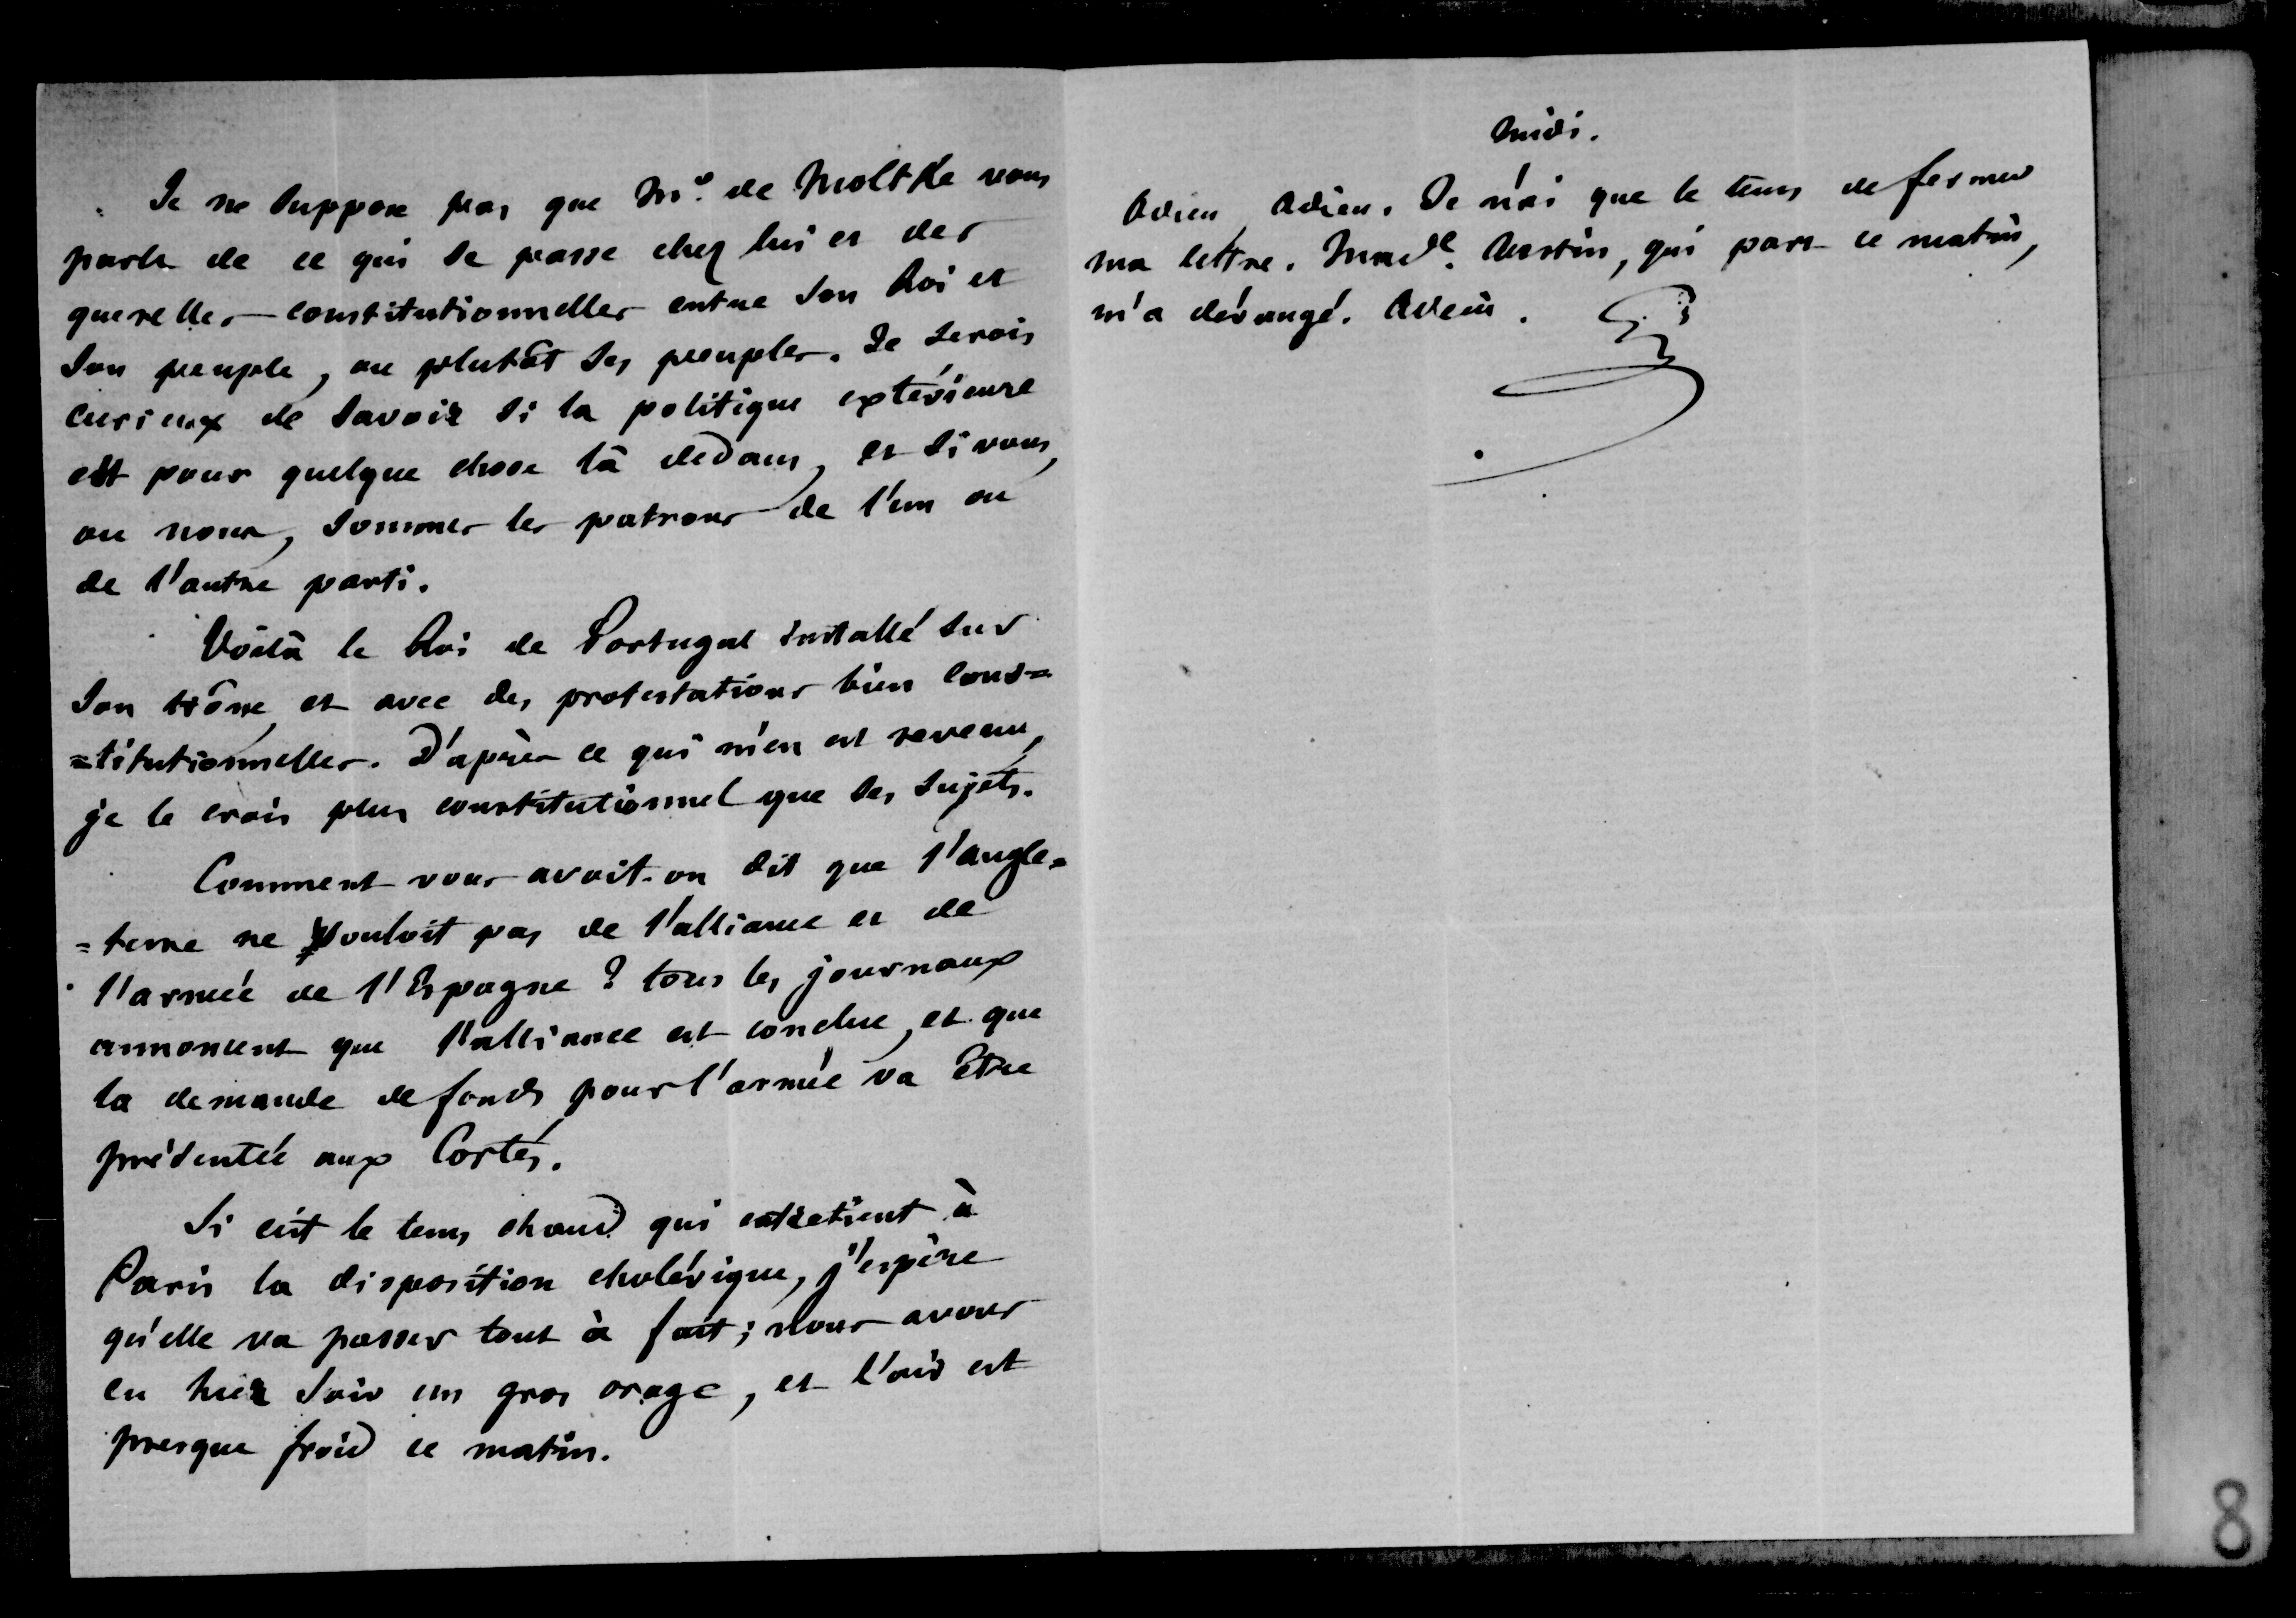 Je ne suppose pas que Mr. de Moltke vous
parle de ce qui se passe chez lui et des
querelles constitutionnelles entre son Roi et
son peuple, ou plutôt ses peuples. Je serois
curieux de savoir si la politique extérieure
est pour quelque chose là dedans, et si vous,
ou nous, sommes les patrons de l'un ou
de l'autre parti.
Voilà le Roi de Portugal installé sur
son trône et avec des protestations bien cons=
=titutionnelles. D'après ce qui m'en est revenu,
je le crois plus constitutionnel que ses sujets.
Comment vous avoit-on dit que l'angle=
=terre ne vouloit pas de l'alliance et de
l'armée de l'Espagne? tous les journaux
annoncent que l'alliance est conclue, et que
la demande de fonds pour l'armée va être
présentée aux Cortès.
Si c'est le tems chaud qui entretient à
Paris la disposition cholérique, j'espère
qu'elle va passer tout à fait; nous avons
eu hier soir un gros orage, et l'air est
presque froid ce matin.
Midi.
Adieu, Adieu. Je n'ai que le tems de fermer
ma lettre. Made. Austin, qui part ce matin,
m'a dérangé. Adieu.
G
8